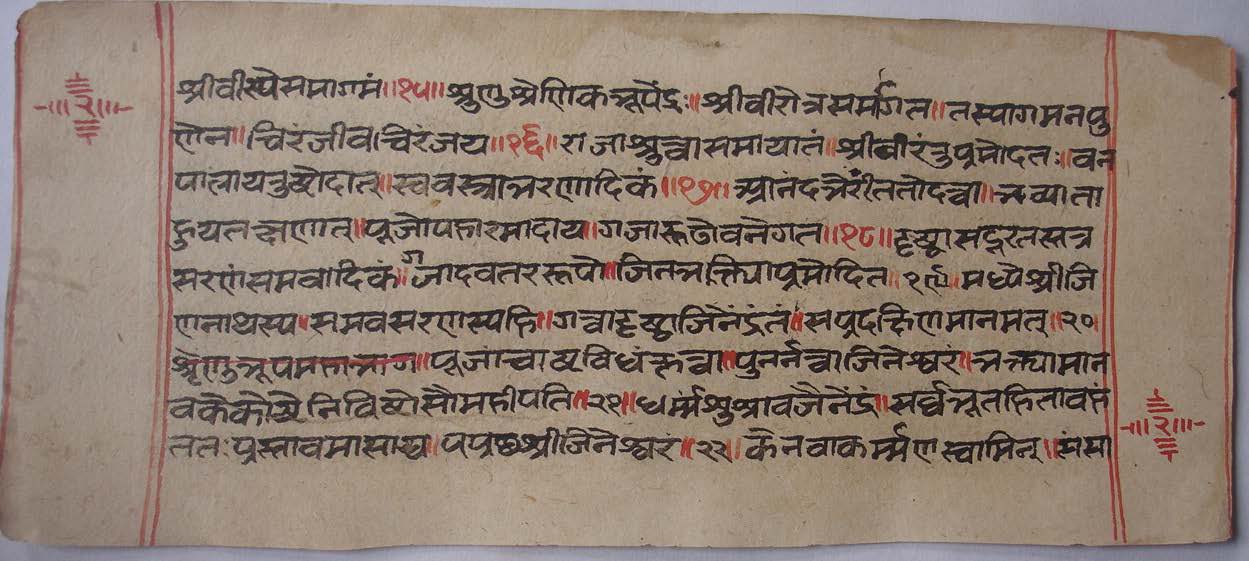 श्रीवीरपेसमागमं॥१५॥श्रुणुश्रेणिकभूपेंद्रः॥श्रीवीरोत्रसर्मागत॥तस्यागमनपु
ण्येन॥चिरंजीवचिरंजय॥१६॥राजाश्रुत्वासमायातं॥श्रीवीरंतुप्रमोदतः॥वन
पालायतुष्टोदात्॥स्ववस्त्राभरणादिकं॥१७॥आनंदभेरींततोदत्वा॥भव्याता
हुयतत्क्षणात्॥पूजोपहारमादाय॥गजारूढोवनेगत॥१८॥दृष्ट्वासदूरतस्तत्र
सरणंसमवादिकं॥गजादवतररूपो॥जिनभक्तियाप्रमोदित॥१९॥मध्येश्रीजि
णनाथस्य॥समवसरणस्यहि॥गत्वादृष्ट्वाजिनेंद्रंतं॥सप्रदक्षिणमानमत्॥२०॥
श्रेणुभूपमहाभाग॥पूजांचाष्टविधंकृत्वा॥पुनर्नत्वाजिनेश्वरं॥भक्त्यामान
वकेकोष्टेनिविष्टोसौमहीपति॥२१॥धर्म्मश्रुश्रावजैनेंद्रं॥सर्वभूतहितावहं
ततःप्रस्तावमासाद्य॥पप्रछश्रीजिनेश्वरं॥२२॥केनवाकर्म्मणस्वामिन्॥संसा
२
२